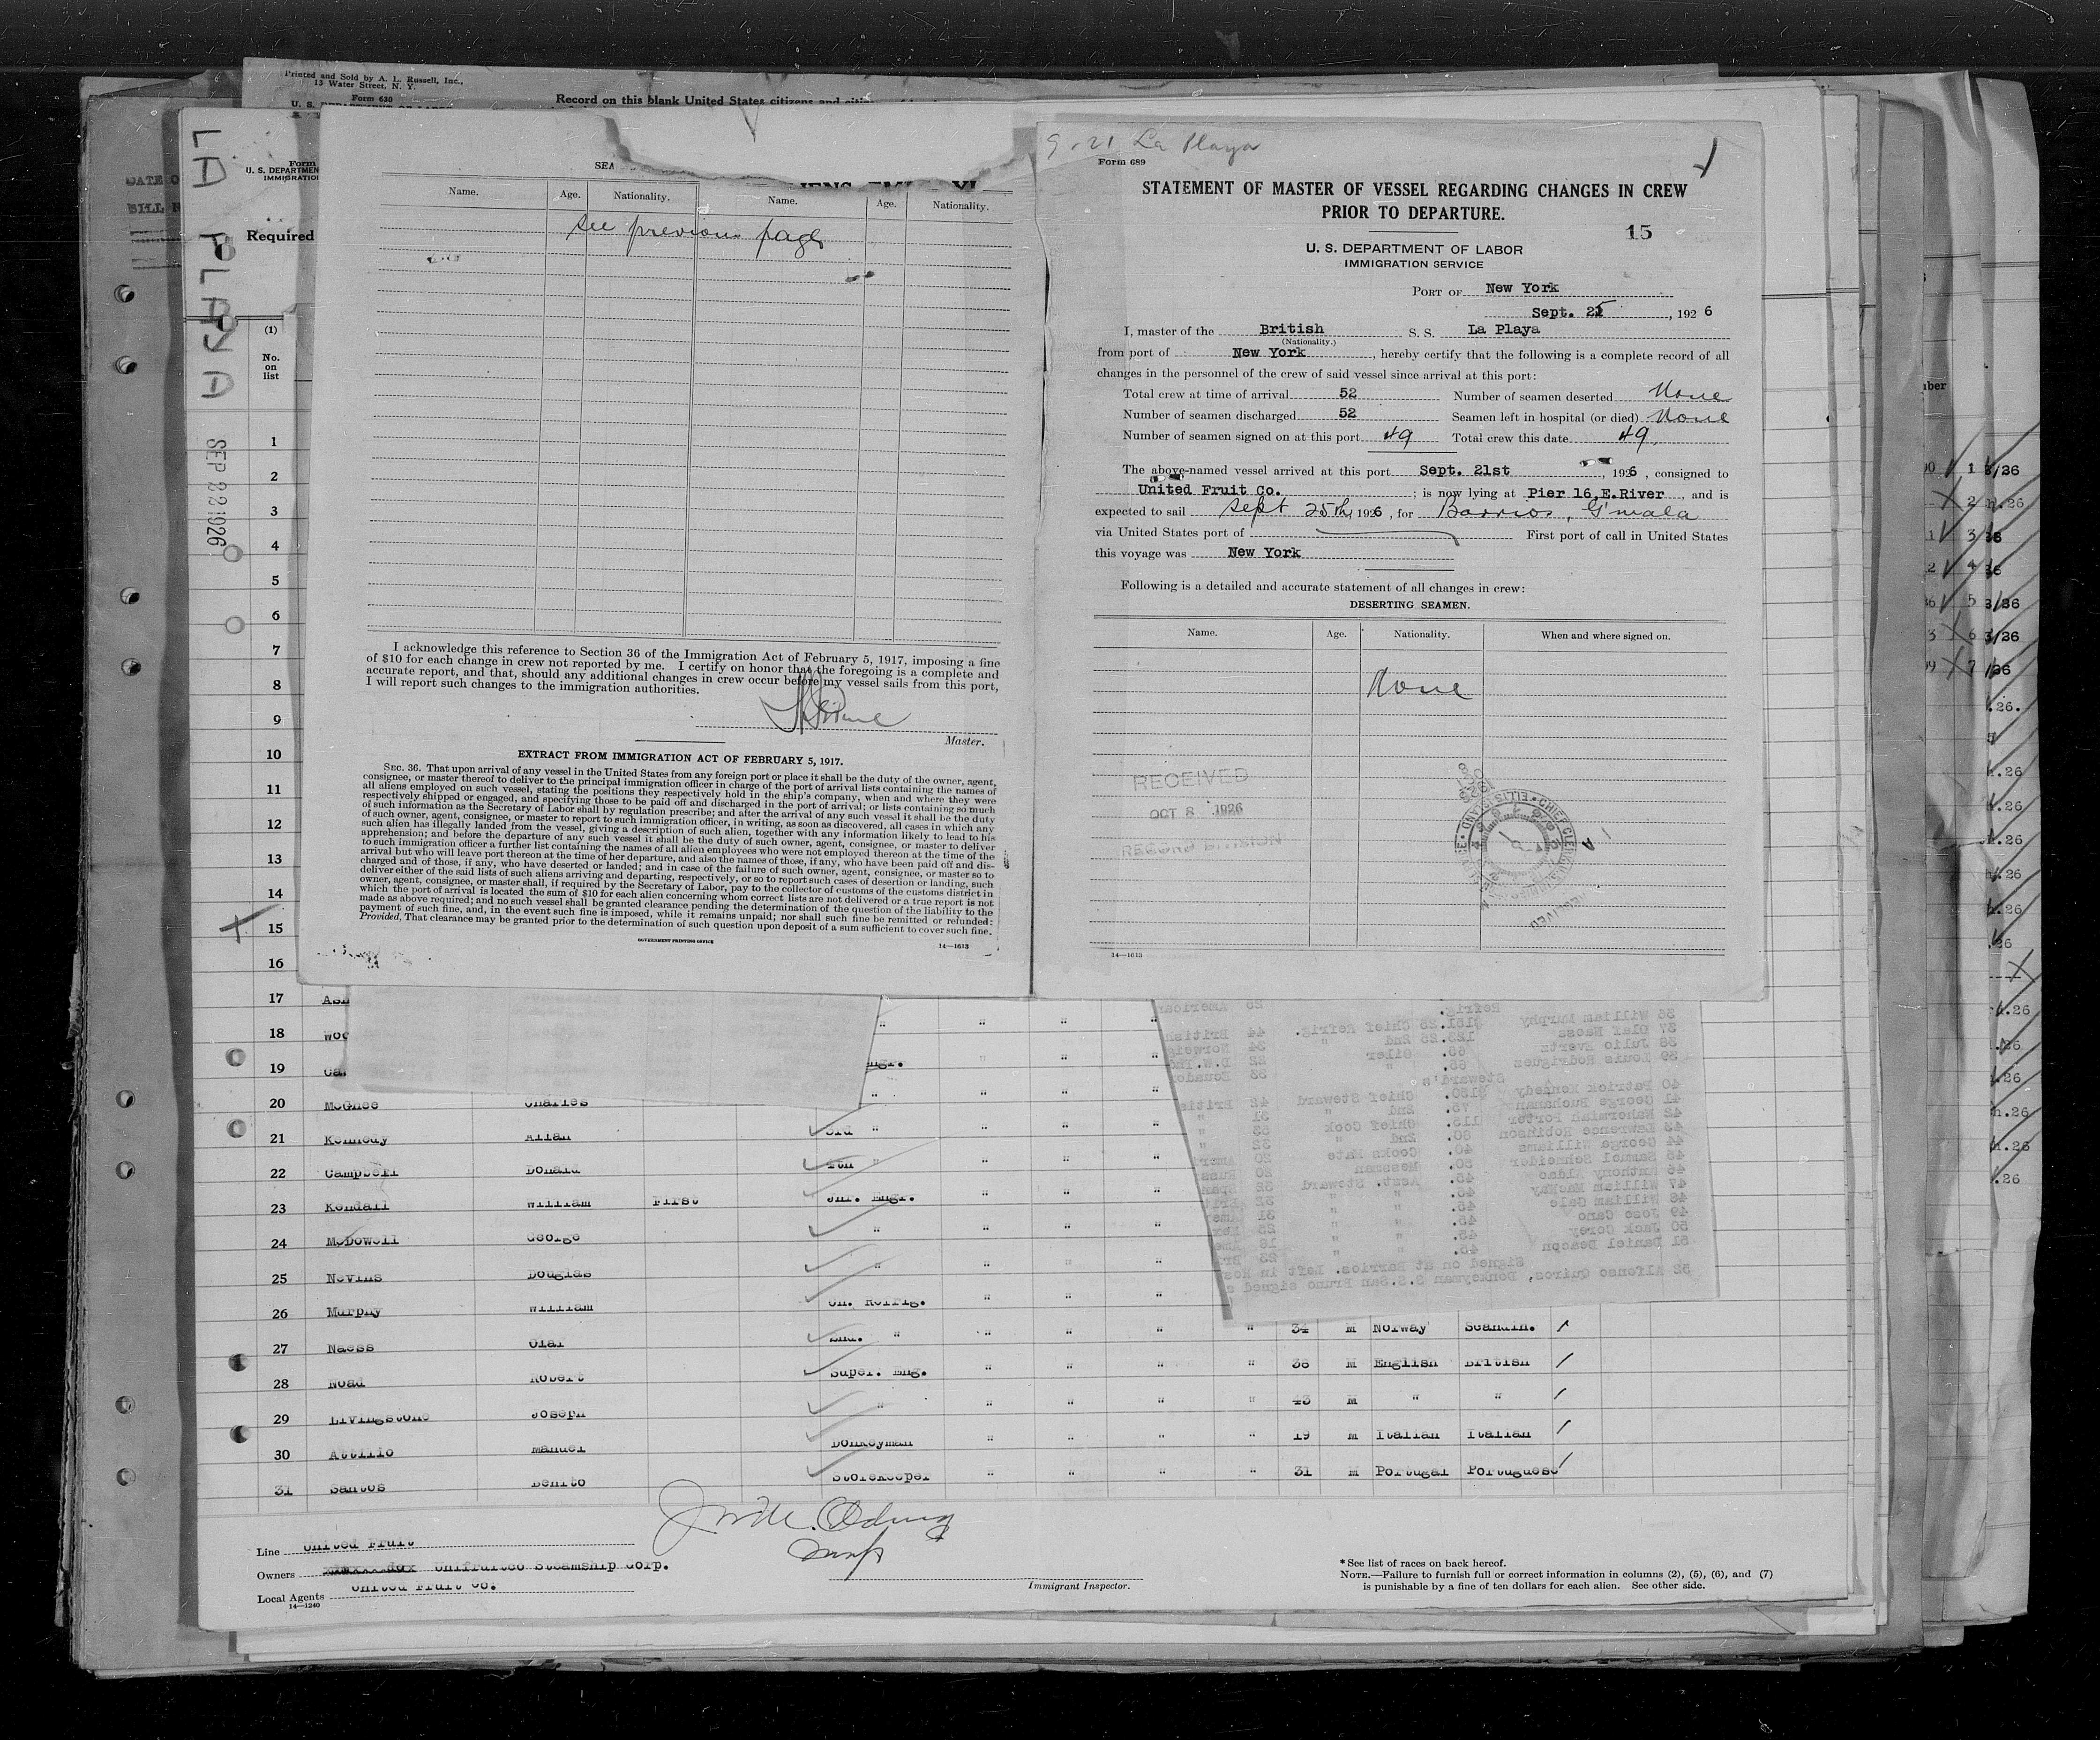 Printed and Sold by A. L. Russell, Inc.,
15 Water Street, N. Y.
Form 630
Record on this blank United States citizens and
LA PLAYA
SEP 22 1926
Form
U. S. DEPARTMEN
IMMIGRATIO
Required
(1)
No.
on
list
Name. Age. Nationality. Name. Age. Nationality.
See previous page
I acknowledge this reference to Section 36 of the Immigration Act of February 5, 1917, imposing a fine
of $10 for each change in crew not reported by me. I certify on honor that the foregoing is a complete and
accurate report, and that, should any additional changes in crew occur before my vessel sails from this port,
I will report such changes to the immigration authorities.
Master.
EXTRACT FROM IMMIGRATION ACT OF FEBRUARY 5, 1917.
SEC. 36. That upon arrival of any vessel in the United States from any foreign port or place it shall be the duty of the owner, agent,
consignee, or master thereof to deliver to the principal immigration officer in charge of the port of arrival lists containing the names of
all aliens employed on such vessel, stating the positions they respectively hold in the ship's company, when and where they were
respectively shipped or engaged, and specifying those to be paid off and discharged in the port of arrival; or lists containing so much
of such information as the Secretary of Labor shall by regulation prescribe; and after the arrival of any such vessel it shall be the duty
of such owner, agent, consignee, or master to report to such immigration officer, in writing, as soon as discovered, all cases in which any
such alien has illegally landed from the vessel, giving a description of such alien, together with any information likely to lead to his
apprehension; and before the departure of any such vessel it shall be the duty of such owner, agent, consignee, or master to deliver
to such immigration officer a further list containing the names of all alien employees who were not employed thereon at the time of the
arrival but who will leave port thereon at the time of her departure, and also the names of those, if any, who have been paid off and dis-
charged and of those, if any, who have deserted or landed; and in case of the failure of such owner, agent, consignee, or master so to
deliver either of the said lists of such aliens arriving and departing, respectively, or so to report such cases of desertion or landing, such
owner, agent, consignee, or master shall, if required by the Secretary of Labor, pay to the collector of customs of the customs district in
which the port of arrival is located the sum of $10 for each alien concerning whom correct lists are not delivered or a true report is not
made as above required; and no such vessel shall be granted clearance pending the determination of the question of the liability to the
payment of such fine, and, in the event such fine is imposed, while it remains unpaid; nor shall such fine be remitted or refunded:
Provided, That clearance may be granted prior to the determination of such question upon deposit of a sum sufficient to cover such fine.
GOVERNMENT PRINTING OFFICE
14—1613
9-21 La Playa
Form 689
STATEMENT OF MASTER OF VESSEL REGARDING CHANGES IN CREW
PRIOR TO DEPARTURE.
15
U. S. DEPARTMENT OF LABOR
IMMIGRATION SERVICE
PORT OF New York
Sept. 25, 1926
I, master of the British S. S. La Playa
(Nationality.)
from port of New York, hereby certify that the following is a complete record of all
changes in the personnel of the crew of said vessel since arrival at this port:
Total crew at time of arrival 52 Number of seamen deserted None
Number of seamen discharged 52 Seamen left in hospital (or died) None
Number of seamen signed on at this port 49 Total crew this date 49
The above-named vessel arrived at this port Sept. 21st, 1926, consigned to
United Fruit Co.; is now lying at Pier 16, E.River, and is
expected to sail Sept 25th, 1926, for Barrios, G'mala
via United States port of First port of call in United States
this voyage was New York
Following is a detailed and accurate statement of all changes in crew:
DESERTING SEAMEN.
Name. Age. Nationality. When and where signed on.
None
RECEIVED
OCT 8 1926
RECORD DIVISION
14—1613
1
2
3
4
5
6
7
8
9
10
11
12
13
14
15
16
17
18
19
20 McGhee Charles "
21 Kennedy Allan 3rd "
22 Campbell Donald 4th "
23 Kendall William First Jnr. Engr.
24 McDowell George "
25 Nevins Douglas "
26 Murphy William Ch. Refrig.
27 Naess Olaf 2nd. " 34 M Norway Scandin.
28 Noad Robert Super. Eng. 38 M English British
29 Livingstone Joseph " 43 M " "
30 Attilio Manuel Donkeyman 19 M Italian Italian
31 Santos Benito Storekeeper 31 M Portugal Portuguese
36 William Murphy $151.25 Chief Refrig. 44 British
37 Olaf Naess 123.25 2nd " 34
38 Julio Evertz 65. Oiler 22
39 Louis Rodriguez 65. " 33
Steward's
40 Patrick Kennedy $180. Chief Steward 42
41 George Buchanan 75. 2nd " 31
42 Nehermiah Porter 115. Chief Cook
43 Lawrence Robinson 80. 2nd " 32
44 George Williams 40. Cooks Mate 20
45 Samuel Schneider 50. Messman 20
46 Anthony Aldao 45. Asst. Steward
47 William MacKay 45. " "
48 William Dale 45. " " 31
49 Jose Cano 45. " "
50 Jack Corey 45. " "
51 Daniel Deacon 45. " "
Signed on at Barrios. Left in Hos
52 Alfonso Quiros, Donkeyman S.S.San Bruno signed
Line United Fruit
Owners Unifruitco Steamship Corp.
Local Agents United Fruit Co.
14—1240
Immigrant Inspector.
* See list of races on back hereof.
NOTE.—Failure to furnish full or correct information in columns (2), (5), (6), and (7)
is punishable by a fine of ten dollars for each alien. See other side.